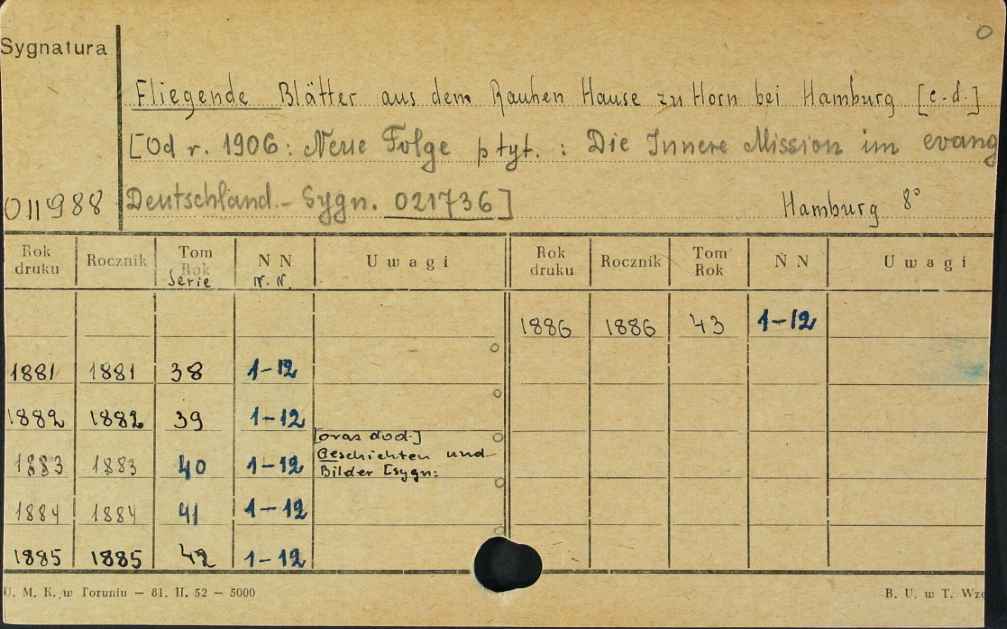 0
Sygnatura
Fliegende Blätter aus dem Rauhen Hause zu Horn bei Hamburg [c.d.]
[Od r. 1906: Neue Folge p tyt. : Die Innere Mission im evang
011988 Deutschland. - Sygn. 021736]
Hamburg 8°
Rok druku Rocznik Tom Rok Serie N N N. N. U w a g i Rok druku Rocznik Tom Rok N N U w a g i
1886 1886 43 1-12
1881 1881 38 1-12
1882 1882 39 1-12
[oraz dod.]
1883 1883 40 1-12 Geschichten und
Bilder [sygn:
1884 1884 41 1-12
1885 1885 42 1-12
U. M. K. w Toruniu — 81. II. 52 — 5000 B. U. w T. Wzó